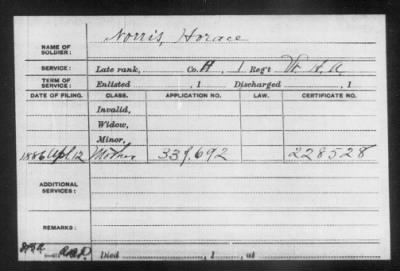 Norris, Horace
NAME OF SOLDIER:
SERVICE: Late rank, Co. H, 1 Reg't Vt. H. A.
TERM OF SERVICE: Enlisted , 1 Discharged , 1
DATE OF FILING. CLASS. APPLICATION NO. LAW. CERTIFICATE NO.
Invalid,
Widow,
Minor,
1886 Apl 12 Mother 339.692 228528
ADDITIONAL SERVICES:
REMARKS:
Died , 1 , at